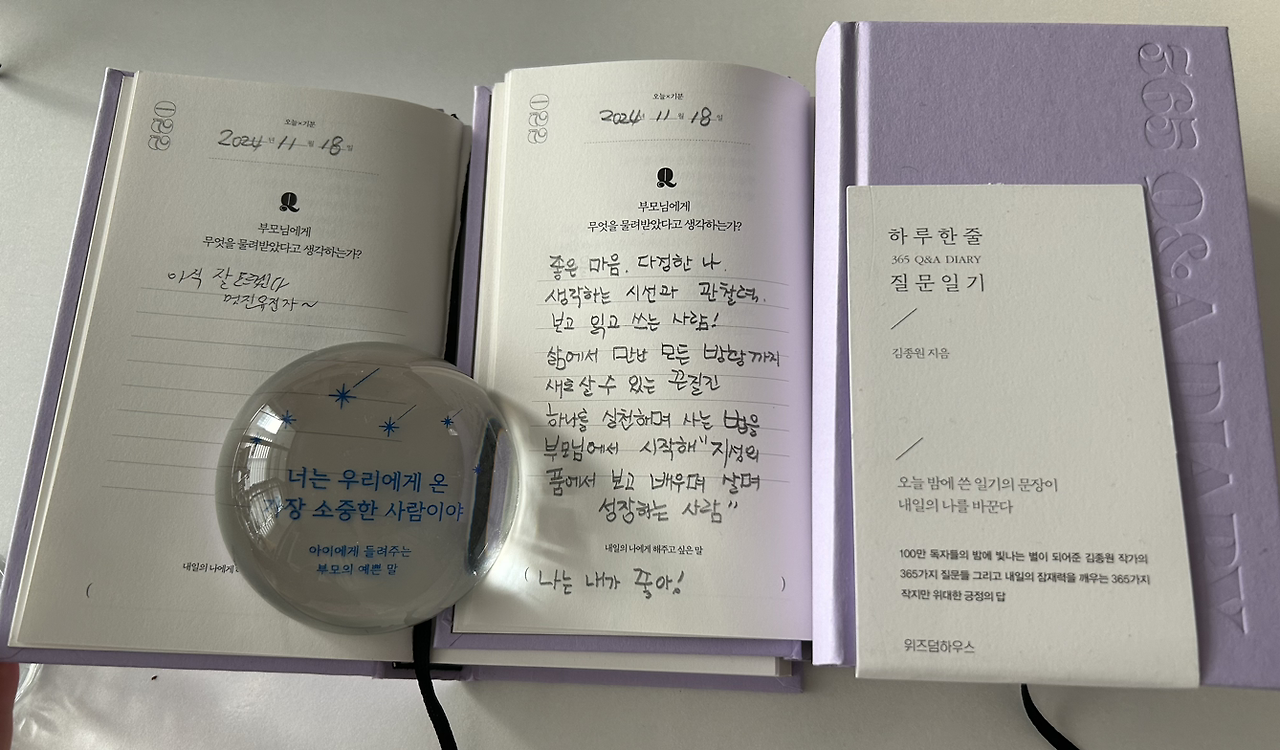 022
오늘×기분
2024년 11월 18일
Q
부모님에게
무엇을 물려받았다고 생각하는가?
이석 잘
멋진유전자~
너는 우리에게 온
장 소중한 사람이야
아이에게 들려주는
부모의 예쁜 말
내일의 나에게
(
022
오늘×기분
2024년 11월 18일
Q
부모님에게
무엇을 물려받았다고 생각하는가?
좋은 마음. 다정한 나.
생각하는 시선과 관찰력.
보고 읽고 쓰는 사람!
삶에서 만난 모든 방향까지
새로 살 수 있는 끈질긴
하나를 실천하며 사는 법을
부모님에서 시작해 "지성의
품에서 보고 배우며 살며
성장하는 사람"
내일의 나에게 해주고 싶은 말
( 나는 내가 좋아! )
365 Q&A DIARY
하루 한 줄
365 Q&A DIARY
질문 일기
김종원 지음
오늘 밤에 쓴 일기의 문장이
내일의 나를 바꾼다
100만 독자들의 밤에 빛나는 별이 되어준 김종원 작가의
365가지 질문들 그리고 내일의 잠재력을 깨우는 365가지
작지만 위대한 긍정의 답
위즈덤하우스